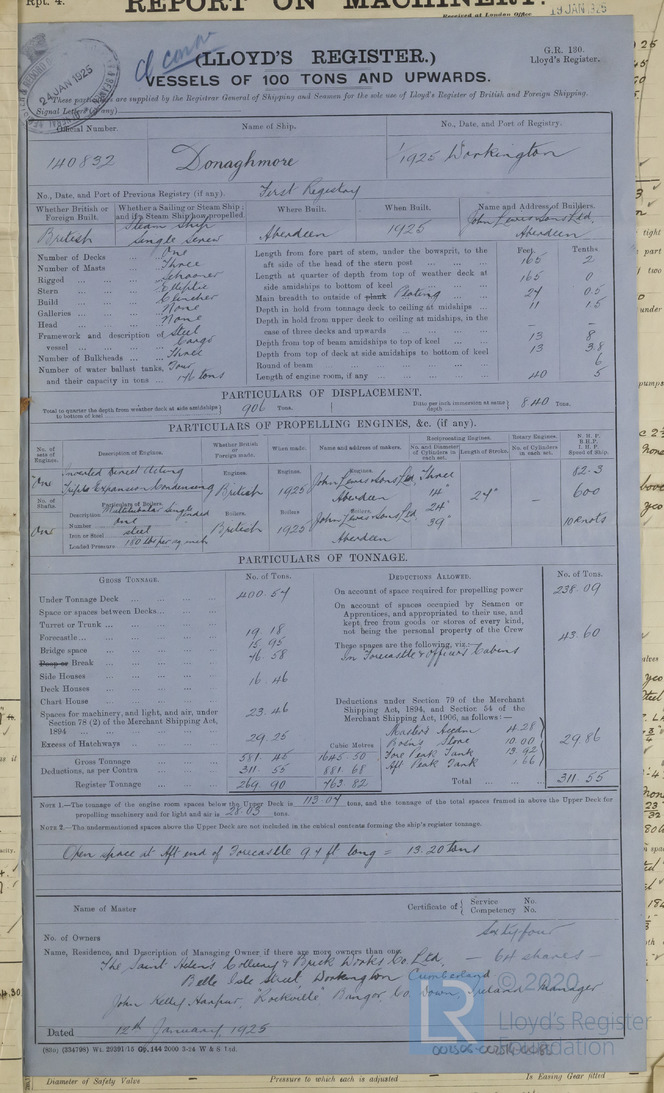 Rpt. 4.
REPORT ON MACHINERY.
Received at London Office 19 JAN 1925
24 JAN 1925
(LLOYD'S REGISTER.)
G.R. 130.
Lloyd's Register.
VESSELS OF 100 TONS AND UPWARDS.
These particulars are supplied by the Registrar General of Shipping and Seamen for the sole use of Lloyd's Register of British and Foreign Shipping.
Signal Letters (if any)
Official Number. Name of Ship. No., Date, and Port of Registry.
140832 Donaghmore 1/1925 Workington
No., Date, and Port of Previous Registry (if any). First Registry
Whether British or Foreign Built. Whether a Sailing or Steam Ship; and if a Steam Ship how propelled. Where Built. When Built. Name and Address of Builders.
British Steam Ship Single Screw Aberdeen 1925 John Lewis & Sons Ltd. Aberdeen
Number of Decks One
Number of Masts Three
Rigged Schooner
Stern Elliptic
Build Clincher
Galleries None
Head None
Framework and description of vessel Steel Cargo
Number of Bulkheads Three
Number of water ballast tanks, Four
and their capacity in tons 146 tons
Feet. Tenths.
Length from fore part of stem, under the bowsprit, to the aft side of the head of the stern post 165 2
Length at quarter of depth from top of weather deck at side amidships to bottom of keel 165 0
Main breadth to outside of plank Plating 27 0.5
Depth in hold from tonnage deck to ceiling at midships 11 1.5
Depth in hold from upper deck to ceiling at midships, in the case of three decks and upwards – –
Depth from top of beam amidships to top of keel 13 8
Depth from top of deck at side amidships to bottom of keel 13 3.8
Round of beam 6
Length of engine room, if any 40 5
PARTICULARS OF DISPLACEMENT.
Total to quarter the depth from weather deck at side amidships to bottom of keel 906 Tons. Ditto per inch immersion at same depth 8.40 Tons.
PARTICULARS OF PROPELLING ENGINES, &c. (if any).
No. of sets of Engines. Description of Engines. Whether British or Foreign made. When made. Name and address of makers. Reciprocating Engines. Rotary Engines. N.H.P. B.H.P. I.H.P. Speed of Ship.
No. and Diameter of Cylinders in each set. Length of Stroke. No. of Cylinders in each set.
One Inverted Direct Acting Triple Expansion Condensing Engines. British Engines. 1925 Engines. John Lewis & Sons Ltd. Aberdeen Three 14" 24" 39" 27" – 82.3 600
No. of Shafts. Particulars of Boilers.
One Description Multitubular Single ended
Number One
Iron or Steel steel
Loaded Pressure 180 lbs per sq inch
Boilers. British Boilers. 1925 Boilers. John Lewis & Sons Ltd. Aberdeen 10 knots
PARTICULARS OF TONNAGE.
GROSS TONNAGE. No. of Tons. DEDUCTIONS ALLOWED. No. of Tons.
Under Tonnage Deck 400.54
Space or spaces between Decks
Turret or Trunk
Forecastle 19.18
Bridge space 15.95
Poop or Break 76.58
Side Houses
Deck Houses 16.46
Chart House
Spaces for machinery, and light, and air, under Section 78 (2) of the Merchant Shipping Act, 1894 23.46
Excess of Hatchways 29.25
Cubic Metres
Gross Tonnage 581.45 1645.50
Deductions, as per Contra 311.55 881.68
Register Tonnage 269.90 763.82
On account of space required for propelling power 238.09
On account of spaces occupied by Seamen or Apprentices, and appropriated to their use, and kept free from goods or stores of every kind, not being the personal property of the Crew 43.60
These spaces are the following, viz:—
In Forecastle & Officers Cabins
Deductions under Section 79 of the Merchant Shipping Act, 1894, and Section 54 of the Merchant Shipping Act, 1906, as follows:—
Master's Accdn 4.28
Bosns Store 10.00
Fore Peak Tank 13.92
Aft Peak Tank 1.66
29.86
Total 311.55
NOTE 1.—The tonnage of the engine room spaces below the Upper Deck is 113.07 tons, and the tonnage of the total spaces framed in above the Upper Deck for propelling machinery and for light and air is 28.03 tons.
NOTE 2.—The undermentioned spaces above the Upper Deck are not included in the cubical contents forming the ship's register tonnage.
Open space at Aft end of Forecastle 9.4 ft long = 13.20 tons
Name of Master Certificate of Service No. Competency No.
No. of Owners Sixty four
Name, Residence, and Description of Managing Owner, if there are more owners than one.
The Saint Helens Colliery & Brick Works Co. Ltd. — 64 shares —
Belle Isle Street, Workington Cumberland
John Kelly "Rockville" Bangor, Co. Down, Ireland Manager
Dated 12th January, 1925
(85o) (334798) Wt. 29391/15 Gp. 144 2000 3-24 W & S Ltd.
© 2020
LR
Lloyd's Register
Foundation
Diameter of Safety Valve
Pressure to which each is adjusted
Is Easing Gear fitted